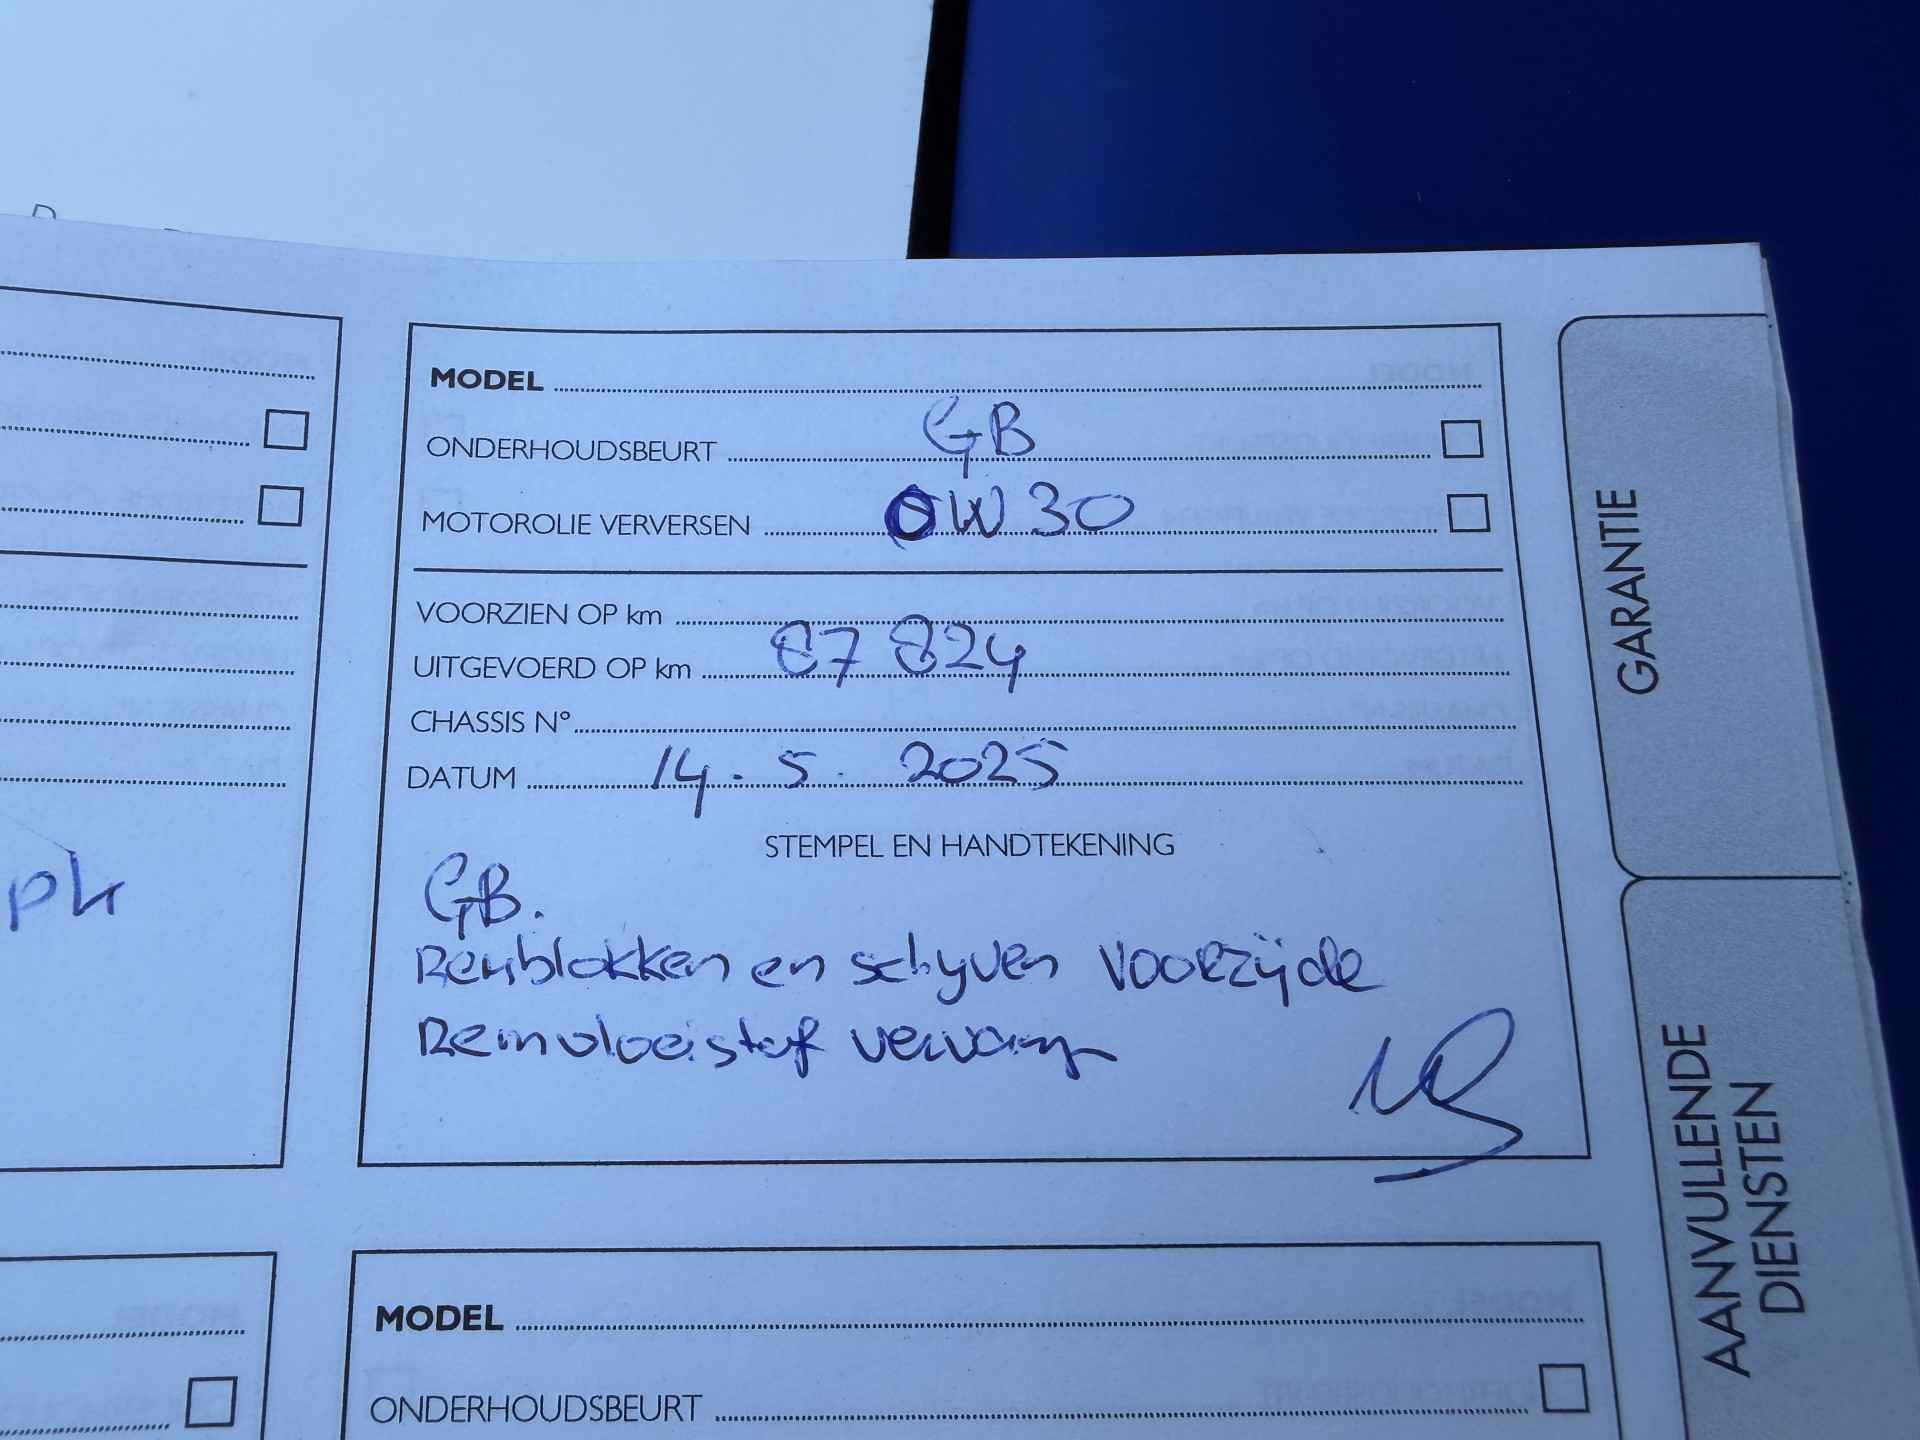 ph
MODEL
ONDERHOUDSBEURT GB
MOTOROLIE VERVERSEN 0W30
VOORZIEN OP km
UITGEVOERD OP km 87 824
CHASSIS N°
DATUM 14.5.2025
STEMPEL EN HANDTEKENING
GB.
Remblokken en schyven voorzijde
Remvloeistof vervang
MODEL
ONDERHOUDSBEURT
GARANTIE
AANVULLENDE
DIENSTEN